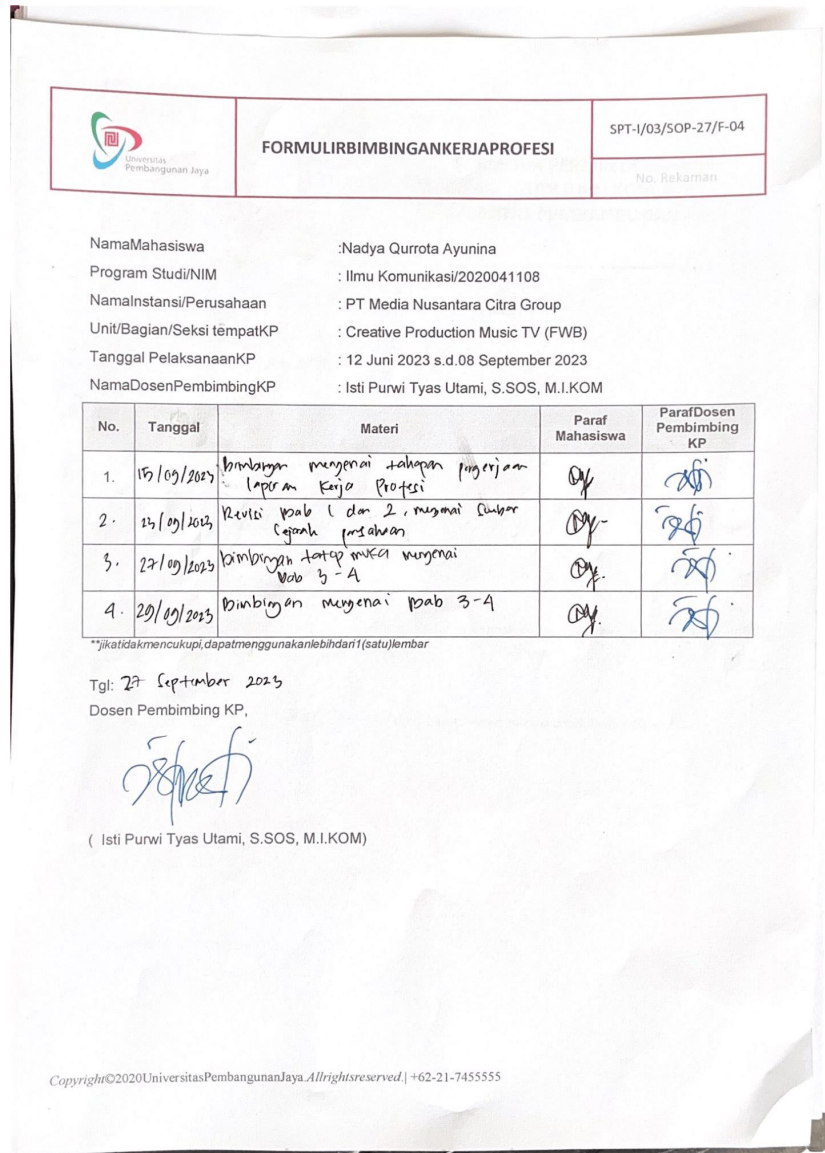 Universitas
Pembangunan Jaya
FORMULIRBIMBINGANKERJAPROFESI
SPT-I/03/SOP-27/F-04
No. Rekaman
NamaMahasiswa :Nadya Qurrota Ayunina
Program Studi/NIM : Ilmu Komunikasi/2020041108
NamaInstansi/Perusahaan : PT Media Nusantara Citra Group
Unit/Bagian/Seksi tempatKP : Creative Production Music TV (FWB)
Tanggal PelaksanaanKP : 12 Juni 2023 s.d.08 September 2023
NamaDosenPembimbingKP : Isti Purwi Tyas Utami, S.SOS, M.I.KOM
No. Tanggal Materi Paraf Mahasiswa ParafDosen Pembimbing KP
1. 15/09/2023 Bimbingan mengenai tahapan pengerjaan
laporan Kerja Profesi
2. 23/09/2023 Revisi bab 1 dan 2, mengenai sumber
sejarah perusahaan
3. 27/09/2023 bimbingan tatap muka mengenai
bab 3-4
4. 29/09/2023 Bimbingan mengenai bab 3-4
**jikatidakmencukupi,dapatmenggunakanlebihdari1(satu)lembar
Tgl: 27 September 2023
Dosen Pembimbing KP,
( Isti Purwi Tyas Utami, S.SOS, M.I.KOM)
Copyright©2020UniversitasPembangunanJaya.Allrightsreserved.| +62-21-7455555